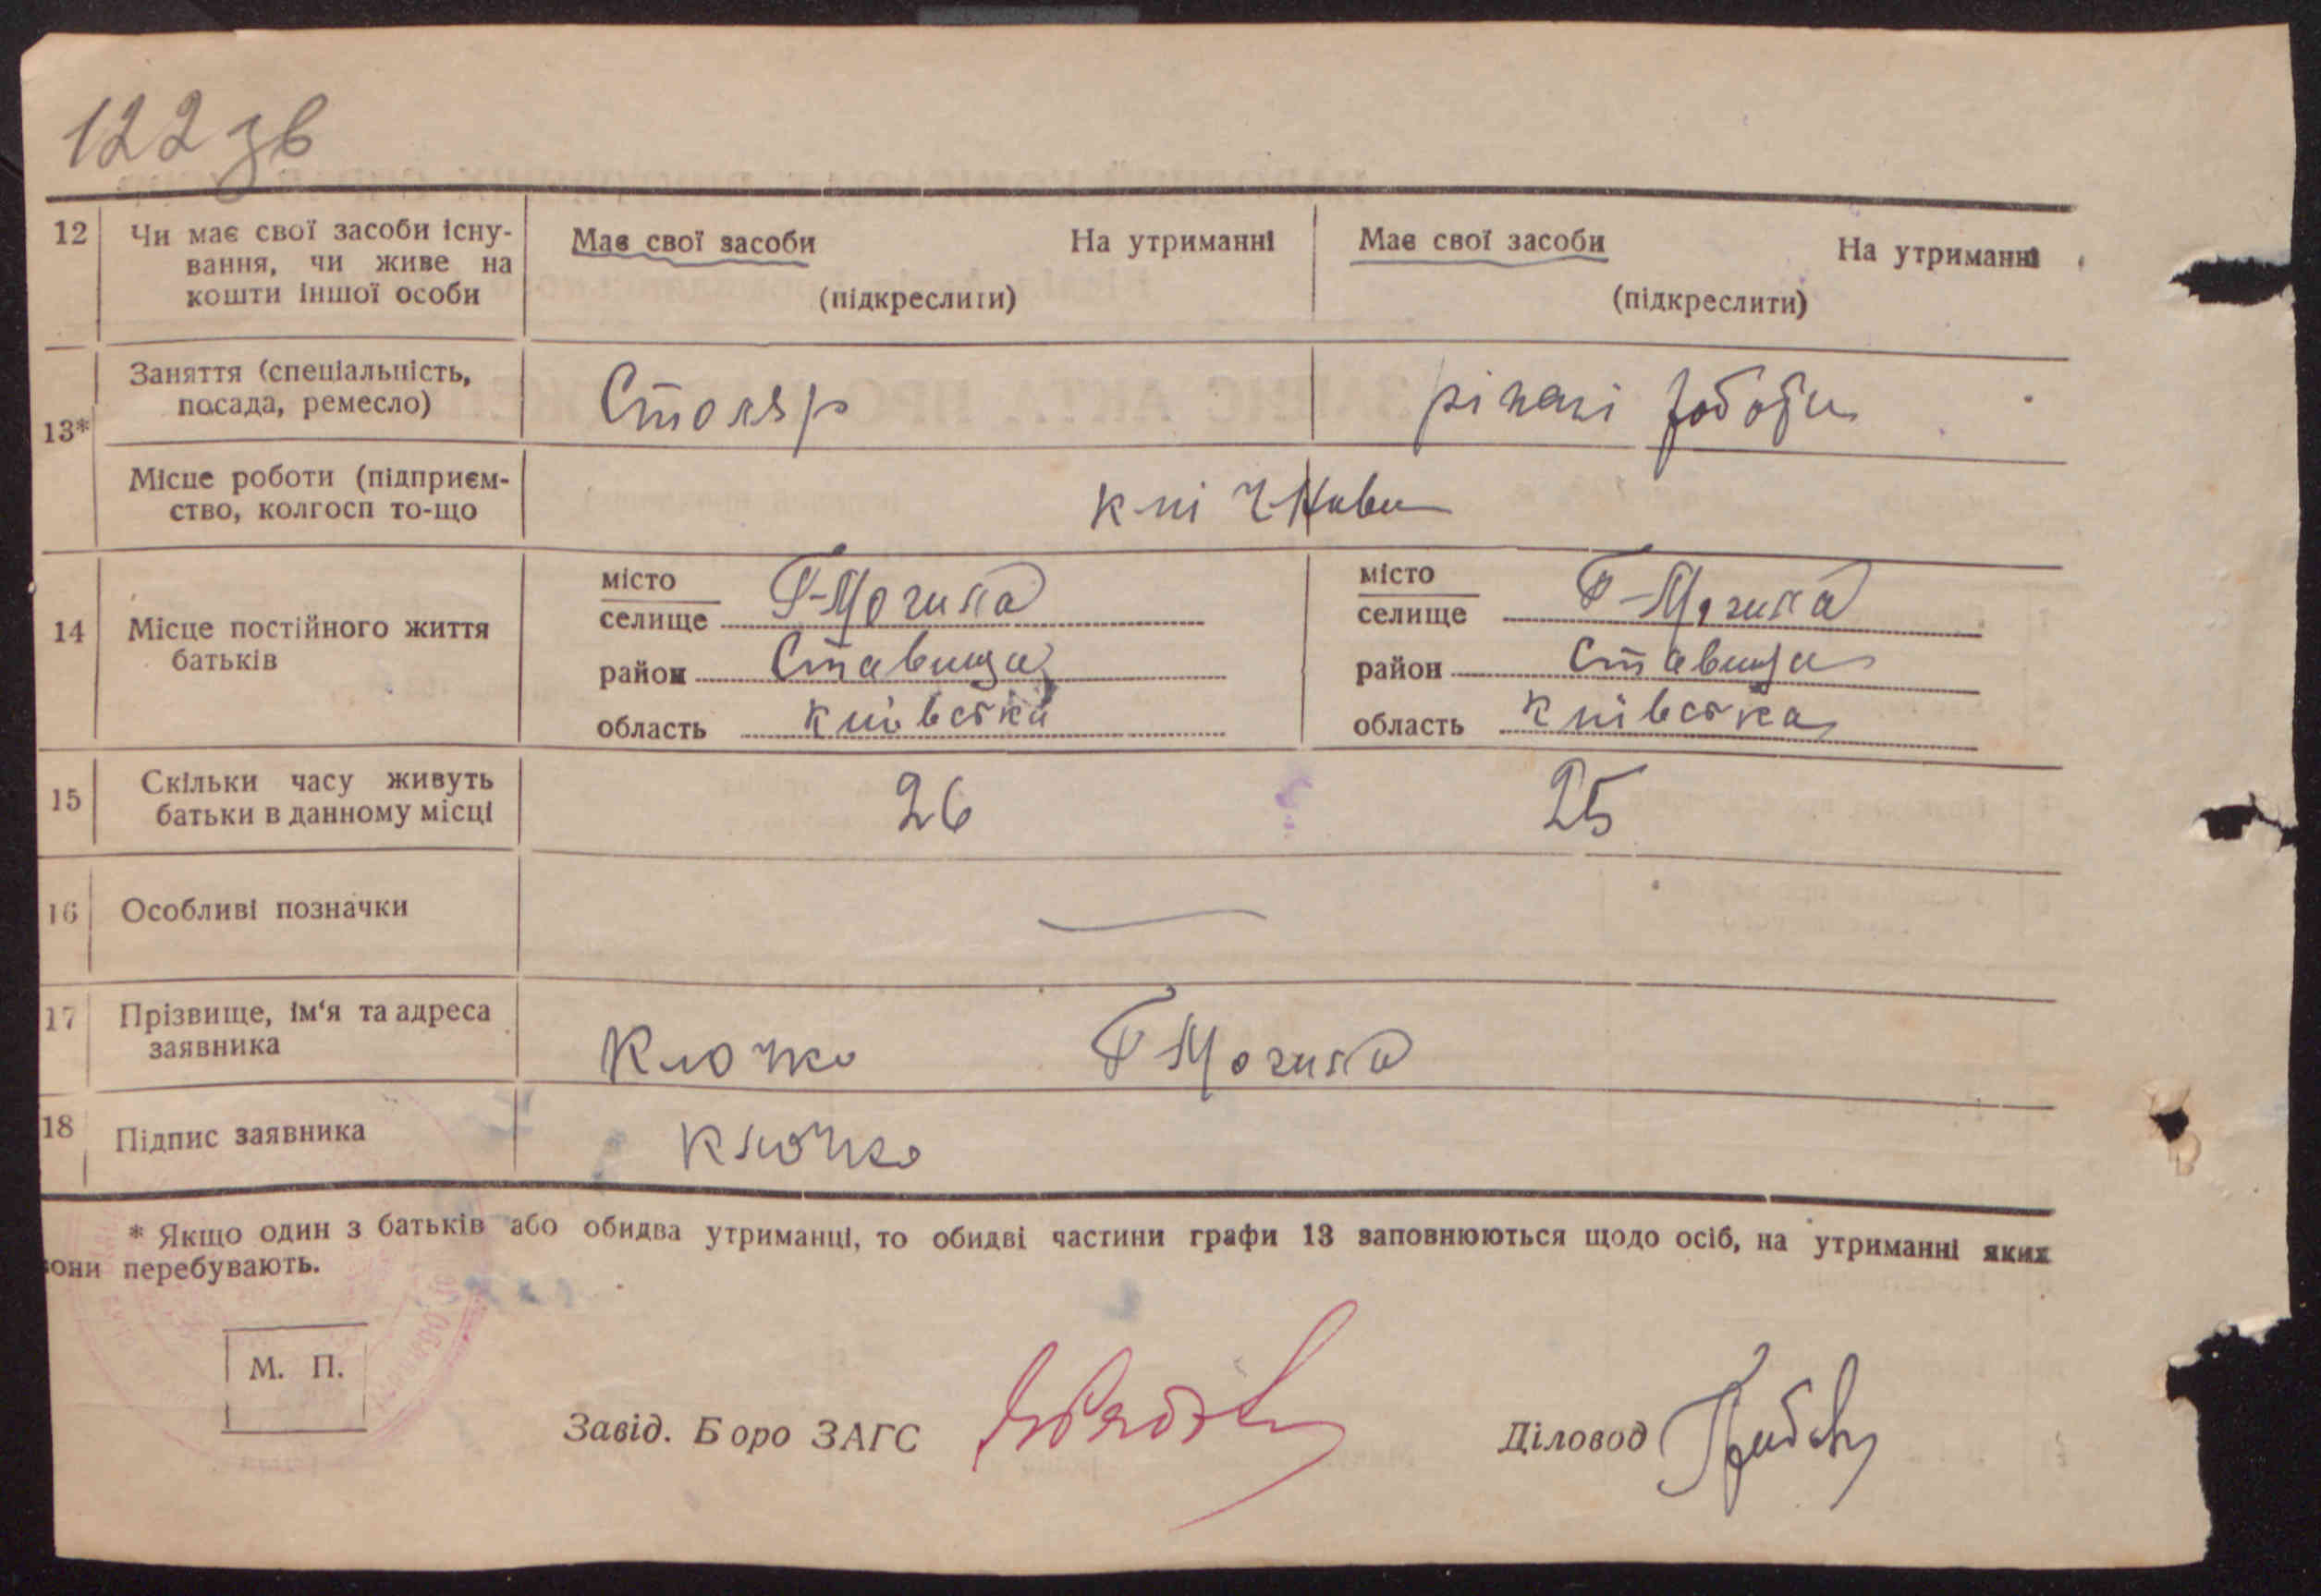 122 зв
12 Чи має свої засоби існу- Має свої засоби На утриманні Має свої засоби На утриманні
вання, чи живе на
кошти іншої особи (підкреслити) (підкреслити)
13* Заняття (спеціальність, Столяр різані роботи
посада, ремесло)
Місце роботи (підприєм-
ство, колгосп то-що
14 Місце постійного життя батьків
місто селище Г-Могила місто селище Г-Могила
район Ставища район Ставища
область Київська область Київська
15 Скільки часу живуть 26 25
батьки в данному місці
16 Особливі позначки —
17 Прізвище, ім'я та адреса Ключко Г Могила
заявника
18 Підпис заявника Ключко
* Якщо один з батьків або обидва утриманці, то обидві частини графи 13 заповнюються щодо осіб, на утриманні яких
вони перебувають.
М. П.
Завід. Бюро ЗАГС Діловод